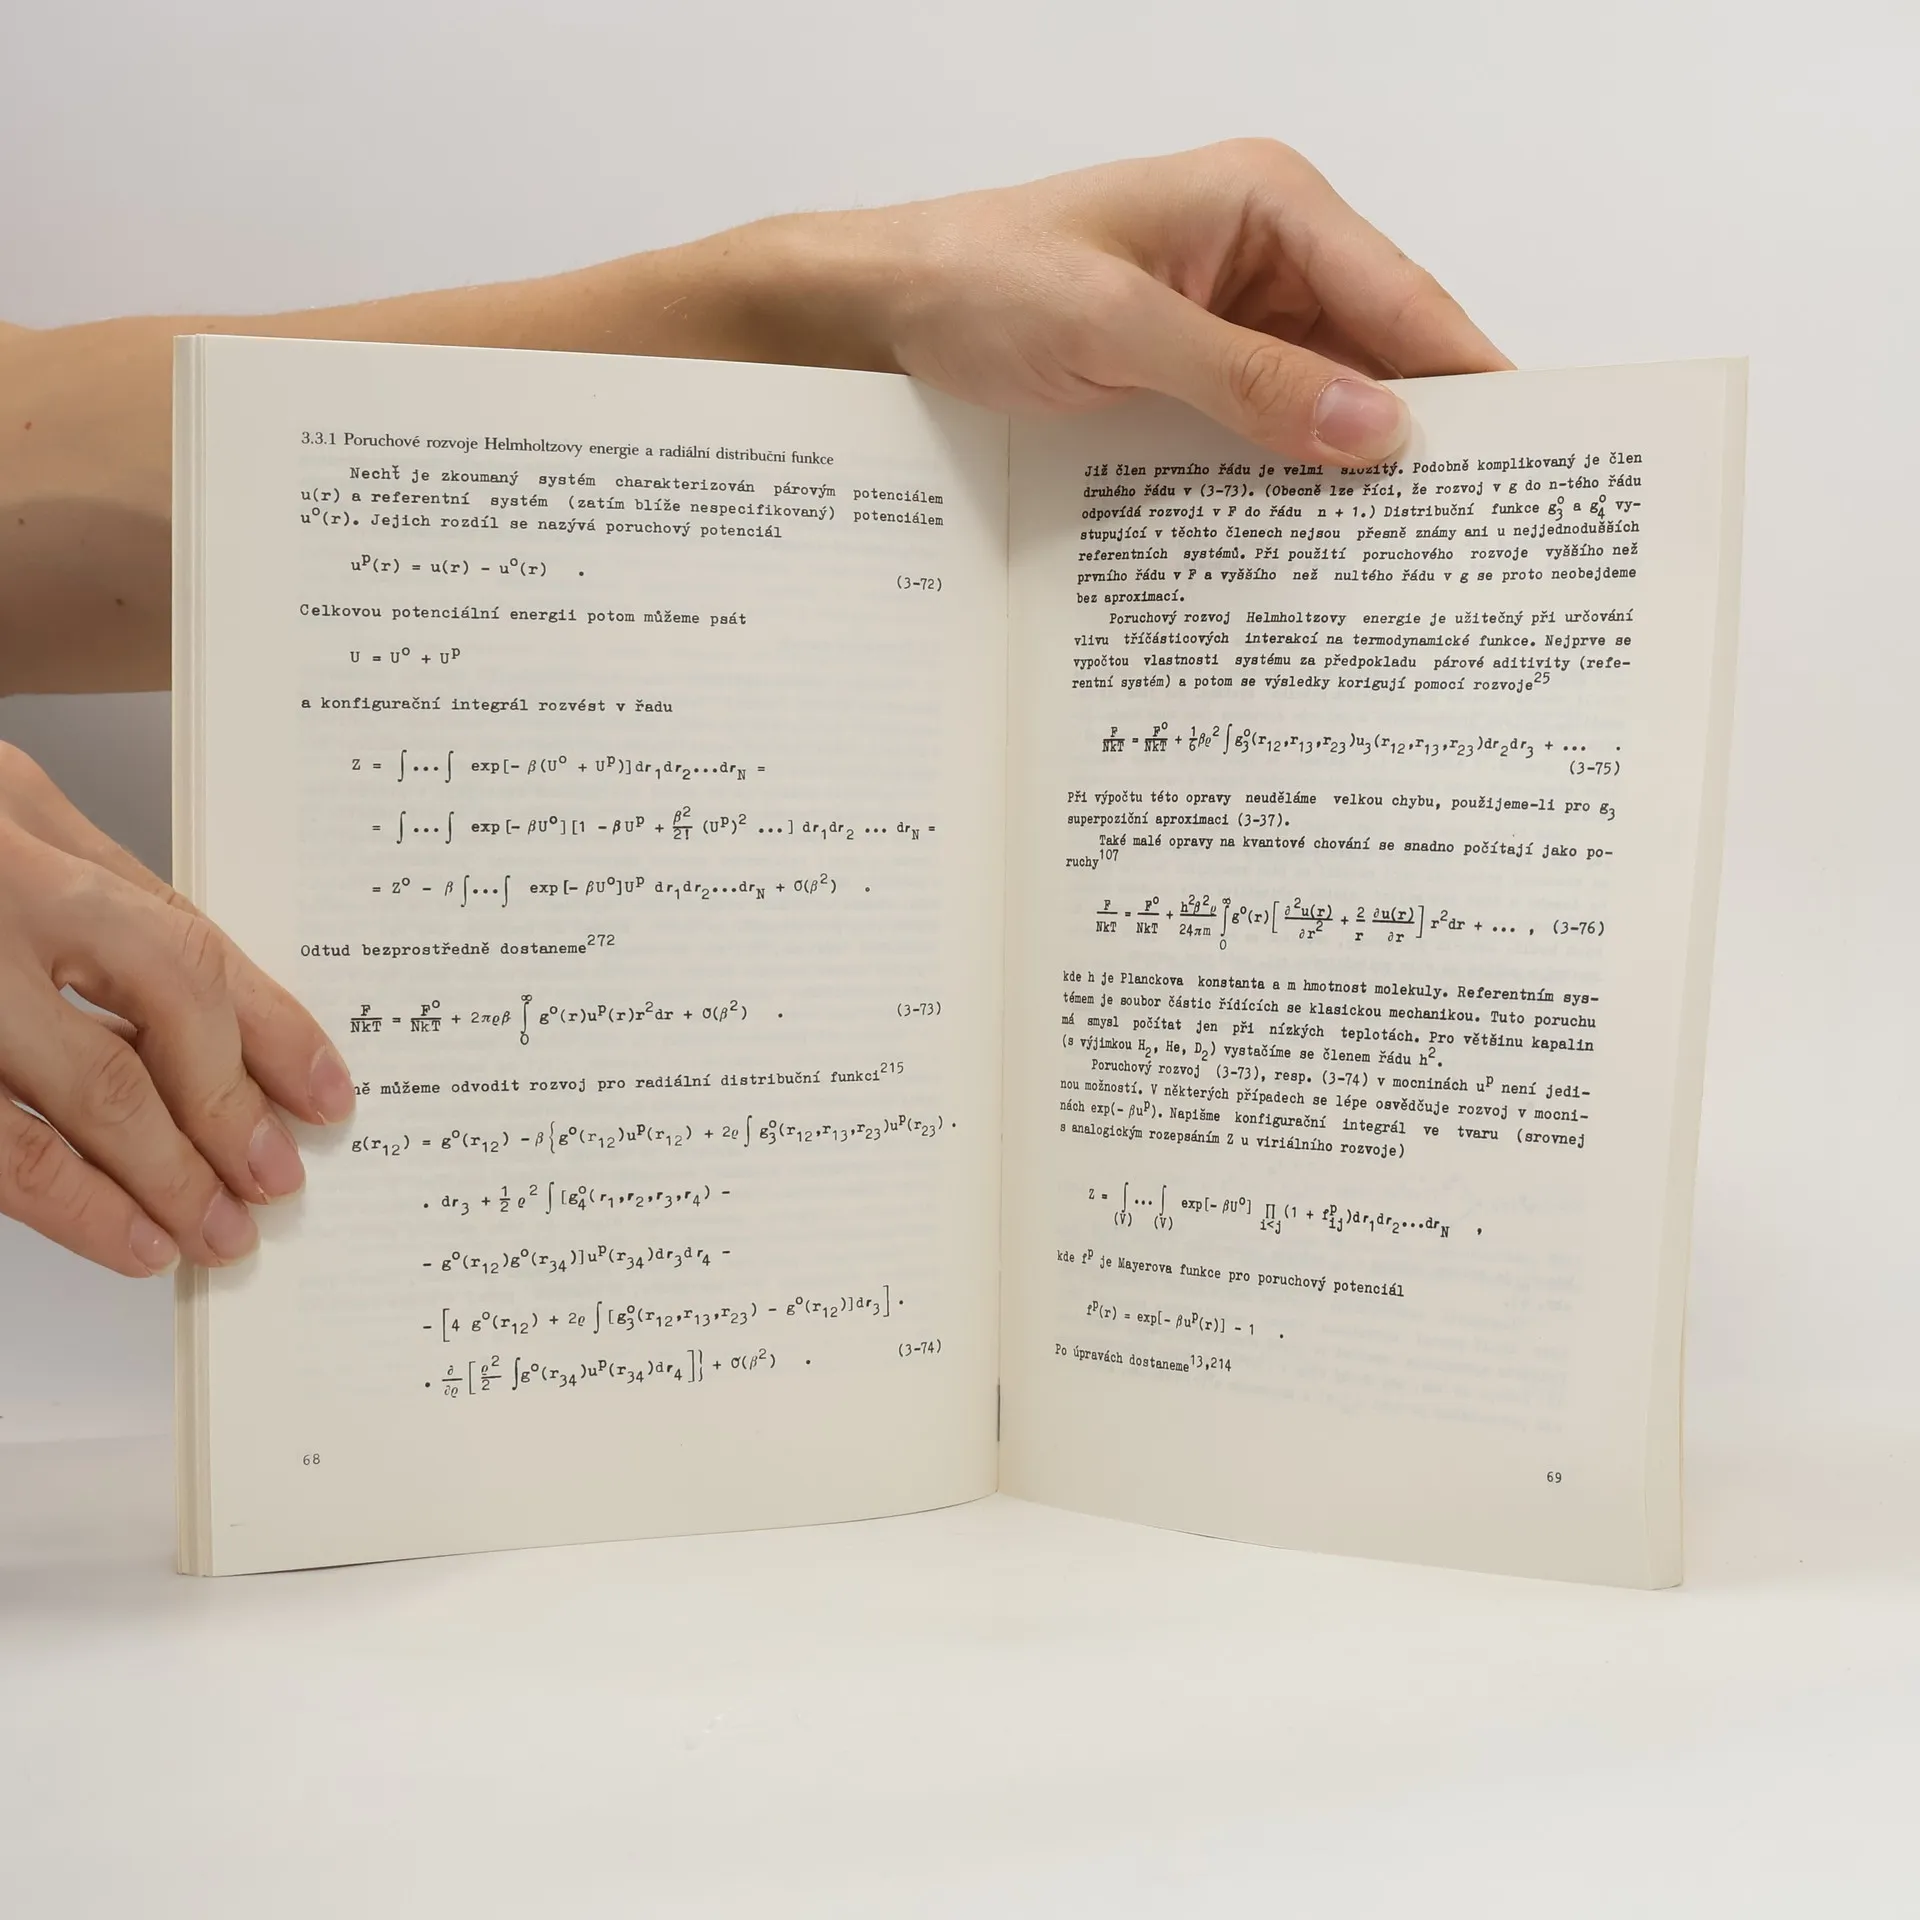 3.3.1 Poruchové rozvoje Helmholtzovy energie a radiální distribuční funkce
Nechť je zkoumaný systém charakterizován párovým potenciálem
u(r) a referentní systém (zatím blíže nespecifikovaný) potenciálem
uᵒ(r). Jejich rozdíl se nazývá poruchový potenciál
uᵖ(r) = u(r) - uᵒ(r) . (3-72)
Celkovou potenciální energii potom můžeme psát
U = Uᵒ + Uᵖ
a konfigurační integrál rozvést v řadu
Z = ∫...∫ exp[- β(Uᵒ + Uᵖ)]dr₁dr₂...dr_N =
= ∫...∫ exp[- βUᵒ][1 - βUᵖ + β²/2! (Uᵖ)² ...] dr₁dr₂ ... dr_N =
= Zᵒ - β ∫...∫ exp[- βUᵒ]Uᵖ dr₁dr₂...dr_N + O(β²) .
Odtud bezprostředně dostaneme²⁷²
F/NkT = Fᵒ/NkT + 2πϱβ ∫₀^∞ gᵒ(r)uᵖ(r)r²dr + O(β²) . (3-73)
ně můžeme odvodit rozvoj pro radiální distribuční funkci²¹⁵
g(r₁₂) = gᵒ(r₁₂) - β{gᵒ(r₁₂)uᵖ(r₁₂) + 2ϱ ∫ g₃ᵒ(r₁₂,r₁₃,r₂₃)uᵖ(r₂₃) .
. dr₃ + 1/2 ϱ² ∫ [g₄ᵒ(r₁,r₂,r₃,r₄) -
- gᵒ(r₁₂)gᵒ(r₃₄)]uᵖ(r₃₄)dr₃dr₄ -
- [4 gᵒ(r₁₂) + 2ϱ ∫ [g₃ᵒ(r₁₂,r₁₃,r₂₃) - gᵒ(r₁₂)]dr₃] .
. ∂/∂ϱ [ϱ²/2 ∫gᵒ(r₃₄)uᵖ(r₃₄)dr₄]} + O(β²) . (3-74)
68
Již člen prvního řádu je velmi složitý. Podobně komplikovaný je člen
druhého řádu v (3-73). (Obecně lze říci, že rozvoj v g do n-tého řádu
odpovídá rozvoji v F do řádu n + 1.) Distribuční funkce g₃ᵒ a g₄ᵒ vy-
stupující v těchto členech nejsou přesně známy ani u nejjednodušších
referentních systémů. Při použití poruchového rozvoje vyššího než
prvního řádu v F a vyššího než nultého řádu v g se proto neobejdeme
bez aproximací.
Poruchový rozvoj Helmholtzovy energie je užitečný při určování
vlivu tříčásticových interakcí na termodynamické funkce. Nejprve se
vypočtou vlastnosti systému za předpokladu párové aditivity (refe-
rentní systém) a potom se výsledky korigují pomocí rozvoje²⁵
F/NkT = Fᵒ/NkT + 1/6 βϱ² ∫ g₃ᵒ(r₁₂,r₁₃,r₂₃)u₃(r₁₂,r₁₃,r₂₃)dr₂dr₃ + ... .
(3-75)
Při výpočtu této opravy neuděláme velkou chybu, použijeme-li pro g₃
superpoziční aproximaci (3-37).
Také malé opravy na kvantové chování se snadno počítají jako po-
ruchy¹⁰⁷
F/NkT = Fᵒ/NkT + h²β²ϱ/24πm ∫₀^∞ gᵒ(r)[∂²u(r)/∂r² + 2/r ∂u(r)/∂r] r²dr + ... , (3-76)
kde h je Planckova konstanta a m hmotnost molekuly. Referentním sys-
témem je soubor částic řídících se klasickou mechanikou. Tuto poruchu
má smysl počítat jen při nízkých teplotách. Pro většinu kapalin
(s výjimkou H₂, He, D₂) vystačíme se členem řádu h².
Poruchový rozvoj (3-73), resp. (3-74) v mocninách uᵖ není jedi-
nou možností. V některých případech se lépe osvědčuje rozvoj v mocni-
nách exp(- βuᵖ). Napišme konfigurační integrál ve tvaru (srovnej
s analogickým rozepsáním Z u viriálního rozvoje)
Z = ∫...∫ exp[- βUᵒ] ∏ (1 + fᵖ_ij)dr₁dr₂...dr_N ,
(V) (V) i<j
kde fᵖ je Mayerova funkce pro poruchový potenciál
fᵖ(r) = exp[- βuᵖ(r)] - 1 .
Po úpravách dostaneme¹³,²¹⁴
69